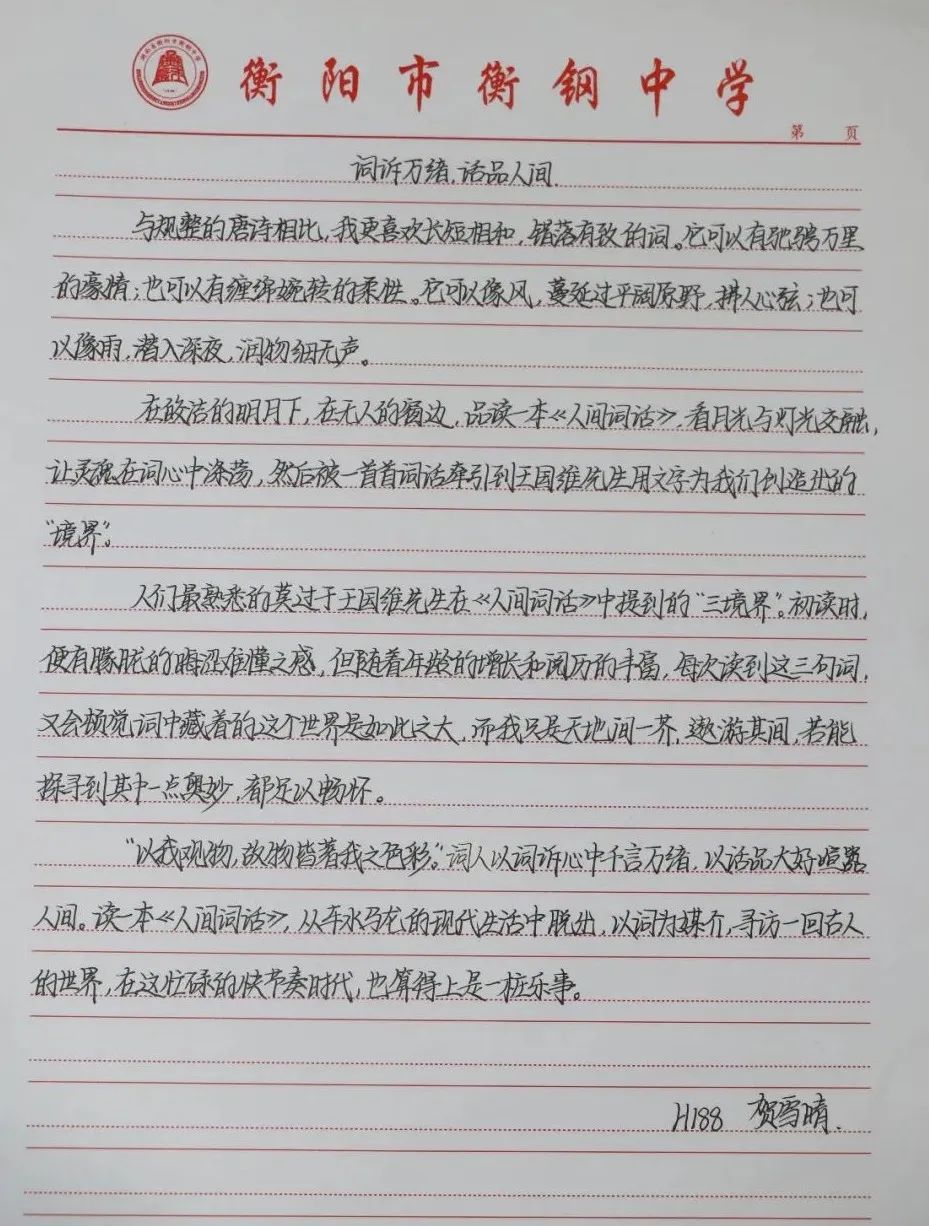 衡阳市衡钢中学
第 页
词诉万绪,话品人间.
与规整的唐诗相比,我更喜欢长短相和,错落有致的词。它可以有驰骋万里
的豪情;也可以有缠绵婉转的柔性。它可以像风,蔓延过平阔原野,拂人心弦;也可
以像雨,潜入深夜,润物细无声。
在皎洁的明月下,在无人的窗边,品读一本《人间词话》,看月光与灯光交融,
让灵魂在词心中涤荡,然后被一首首词话牵引到王国维先生用文字为我们创造出的
“境界”。
人们最熟悉的莫过于王国维先生在《人间词话》中提到的“三境界”。初读时,
便有朦胧的晦涩难懂之感,但随着年龄的增长和阅历的丰富,每次读到这三句词,
又会顿觉词中藏着的这个世界是如此之大,而我只是天地间一芥,遨游其间,若能
探寻到其中一点奥妙,都足以畅怀。
“以我观物,故物皆著我之色彩。”词人以词诉心中千言万绪,以话品大好喧嚣
人间。读一本《人间词话》,从车水马龙的现代生活中脱出,以词为媒介,寻访一回古人
的世界,在这忙碌的快节奏时代,也算得上是一桩乐事。
H188 贺雪晴.